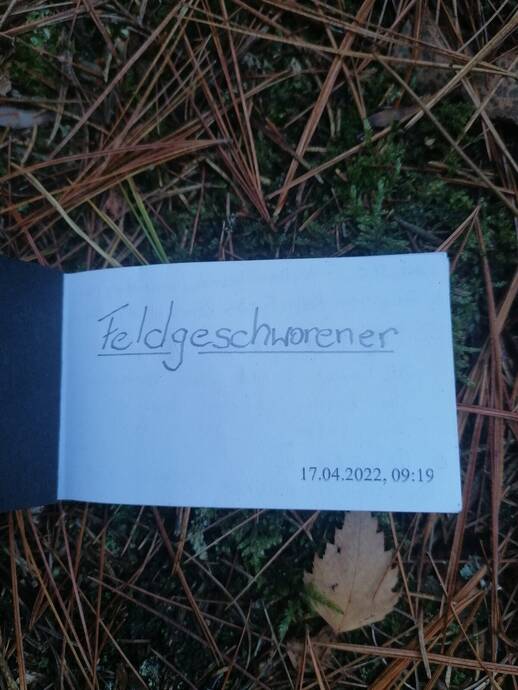 Feldgeschworener
17.04.2022, 09:19